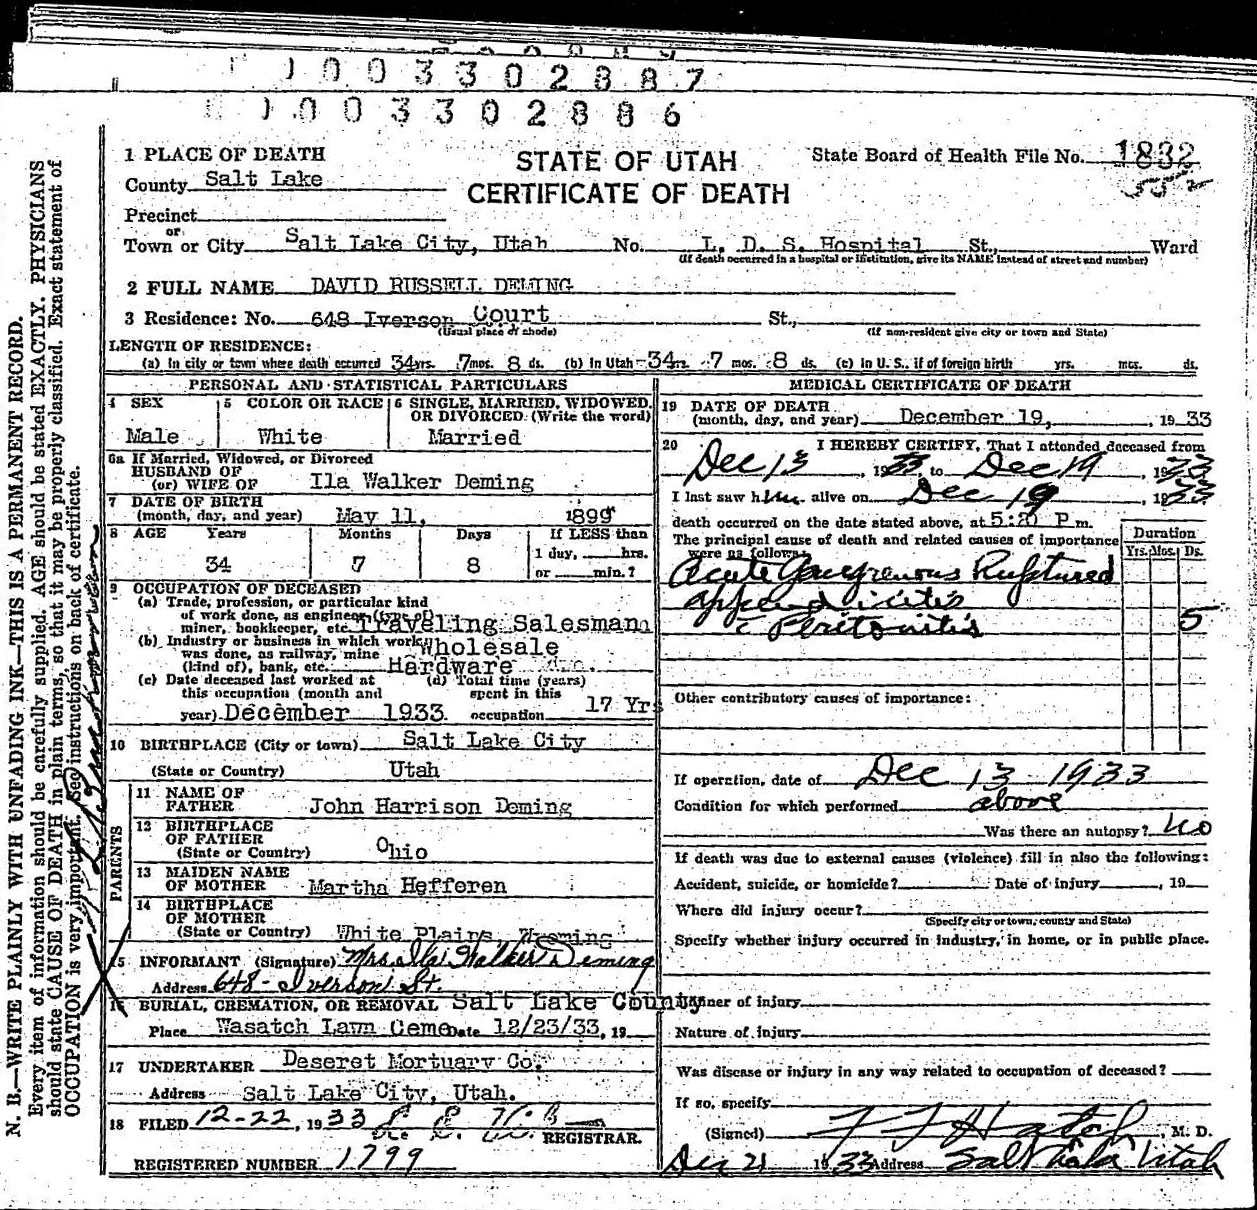 1003302887
1003302886
1 PLACE OF DEATH
STATE OF UTAH
CERTIFICATE OF DEATH
State Board of Health File No. 1832
552
County Salt Lake
Precinct
or
Town or City Salt Lake City, Utah No. L. D. S. Hospital St., Ward
(If death occurred in a hospital or institution, give its NAME instead of street and number)
2 FULL NAME DAVID RUSSELL DEMING
3 Residence: No. 648 Iverson Court St.,
(Usual place of abode) (If non-resident give city or town and State)
LENGTH OF RESIDENCE:
(a) In city or town where death occurred 34 yrs. 7 mos. 8 ds. (b) In Utah 34 yrs. 7 mos. 8 ds. (c) In U. S., if of foreign birth yrs. mos. ds.
PERSONAL AND STATISTICAL PARTICULARS
4 SEX
Male
5 COLOR OR RACE
White
6 SINGLE, MARRIED, WIDOWED, OR DIVORCED (Write the word)
Married
6a If Married, Widowed, or Divorced
HUSBAND OF
(or) WIFE OF Ila Walker Deming
7 DATE OF BIRTH
(month, day, and year) May 11, 1899
8 AGE Years Months Days If LESS than
34 7 8 1 day, hrs.
or min.?
9 OCCUPATION OF DECEASED
(a) Trade, profession, or particular kind
of work done, as engineer (type of)
miner, bookkeeper, etc. Traveling Salesman
(b) Industry or business in which work
was done, as railway, mine Wholesale
(kind of), bank, etc. Hardware
(c) Date deceased last worked at (d) Total time (years)
this occupation (month and spent in this
year) December 1933 occupation 17 Yrs
10 BIRTHPLACE (City or town) Salt Lake City
(State or Country) Utah
PARENTS
11 NAME OF
FATHER John Harrison Deming
12 BIRTHPLACE
OF FATHER
(State or Country) Ohio
13 MAIDEN NAME
OF MOTHER Martha Hefferen
14 BIRTHPLACE
OF MOTHER
(State or Country) White Plains Wyoming
15 INFORMANT (Signature) Mrs. Ila Walker Deming
Address 648 - Iverson St.
16 BURIAL, CREMATION, OR REMOVAL Salt Lake County
Place Wasatch Lawn Ceme Date 12/23/33, 19
17 UNDERTAKER Deseret Mortuary Co.
Address Salt Lake City, Utah.
18 FILED 12-22, 1933
REGISTRAR.
REGISTERED NUMBER 1799
MEDICAL CERTIFICATE OF DEATH
19 DATE OF DEATH
(month, day, and year) December 19, 1933
20 I HEREBY CERTIFY, That I attended deceased from
Dec 13 1933, to Dec 19, 1933
I last saw him alive on Dec 19, 1933
death occurred on the date stated above, at 5:20 P m.
The principal cause of death and related causes of importance
were as follows:
Duration
Yrs. Mos. Ds.
Acute Gangrenous Ruptured
appendicitis
c Peritonitis 5
Other contributory causes of importance:
If operation, date of Dec 13 1933
Condition for which performed above
Was there an autopsy? No
If death was due to external causes (violence) fill in also the following:
Accident, suicide, or homicide? Date of injury , 19
Where did injury occur?
(Specify city or town, county and State)
Specify whether injury occurred in industry, in home, or in public place.
Manner of injury
Nature of injury
Was disease or injury in any way related to occupation of deceased?
If so, specify
(Signed) F F Hatch, M. D.
Dec 21 1933 Address Salt Lake Utah
N. B.—WRITE PLAINLY WITH UNFADING INK—THIS IS A PERMANENT RECORD.
Every item of information should be carefully supplied. AGE should be stated EXACTLY. PHYSICIANS
should state CAUSE OF DEATH in plain terms, so that it may be properly classified. Exact statement of
OCCUPATION is very important. See instructions on back of certificate.